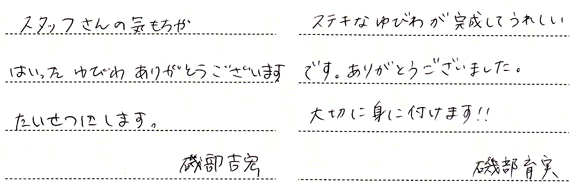 スタッフさんの気もちが
はいった ゆびわ ありがとうございます
たいせつにします。
磯部吉宏
ステキなゆびわが完成してうれしい
です。ありがとうございました。
大切に身に付けます!!
磯部育実